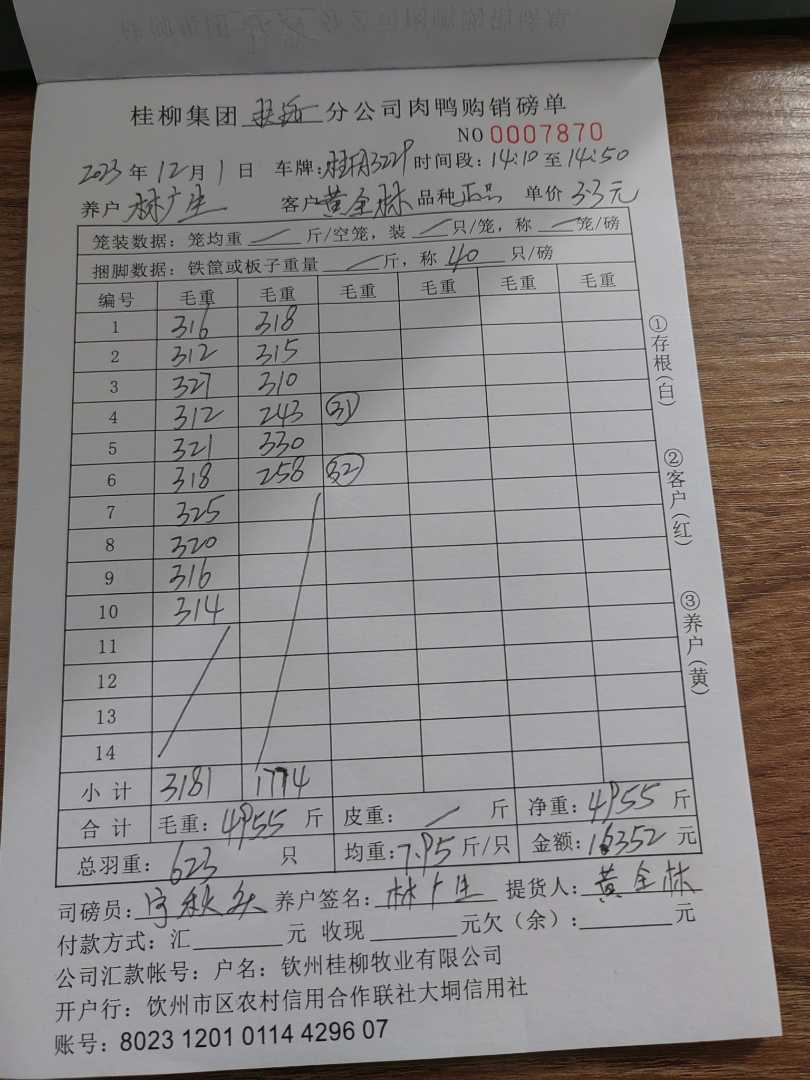 桂柳集团 分公司肉鸭购销磅单
NO 0007870
2023年12月1日 车牌: 3229 时间段:14:10至14:50
养户 林广生 客户 黄全林 品种 正品 单价 3.3元
笼装数据:笼均重 斤/空笼,装 只/笼,称 笼/磅
捆脚数据:铁筐或板子重量 斤,称 40 只/磅
编号 毛重 毛重 毛重 毛重 毛重 毛重
1 316 318
2 312 315
3 327 310
4 312 243 31
5 321 330
6 318 258 32
7 325
8 320
9 316
10 314
11
12
13
14
小计 3181 1774
合计 毛重:4955斤 皮重: 斤 净重:4955斤
总羽重:623只 均重:7.95斤/只 金额:16352元
司磅员: 养户签名:林广生 提货人:黄全林
付款方式:汇 元 收现 元欠(余): 元
公司汇款帐号:户名:钦州桂柳牧业有限公司
开户行:钦州市区农村信用合作联社大垌信用社
账号:8023 1201 0114 4296 07
①存根(白)
②客户(红)
③养户(黄)